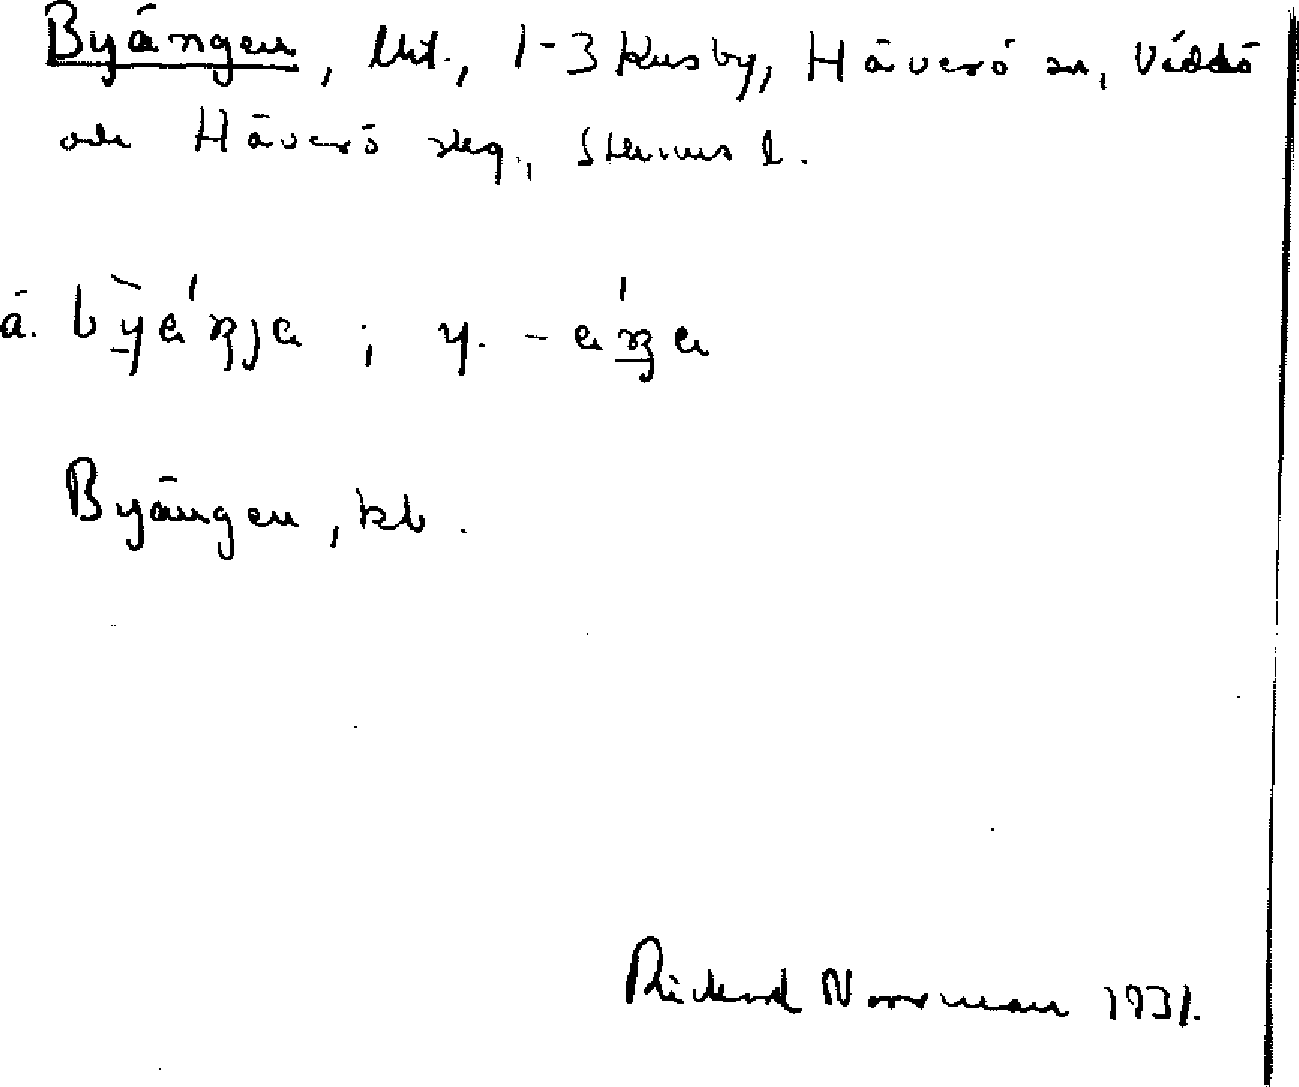 Byängen, lht., 1-3 Kusby, Häverö sn, Väddö
och Häverö skg., Sthlms l.
ä. bỳäŋja ; y. -äŋa
Byängen, kb.
Rickard Norrman 1931.